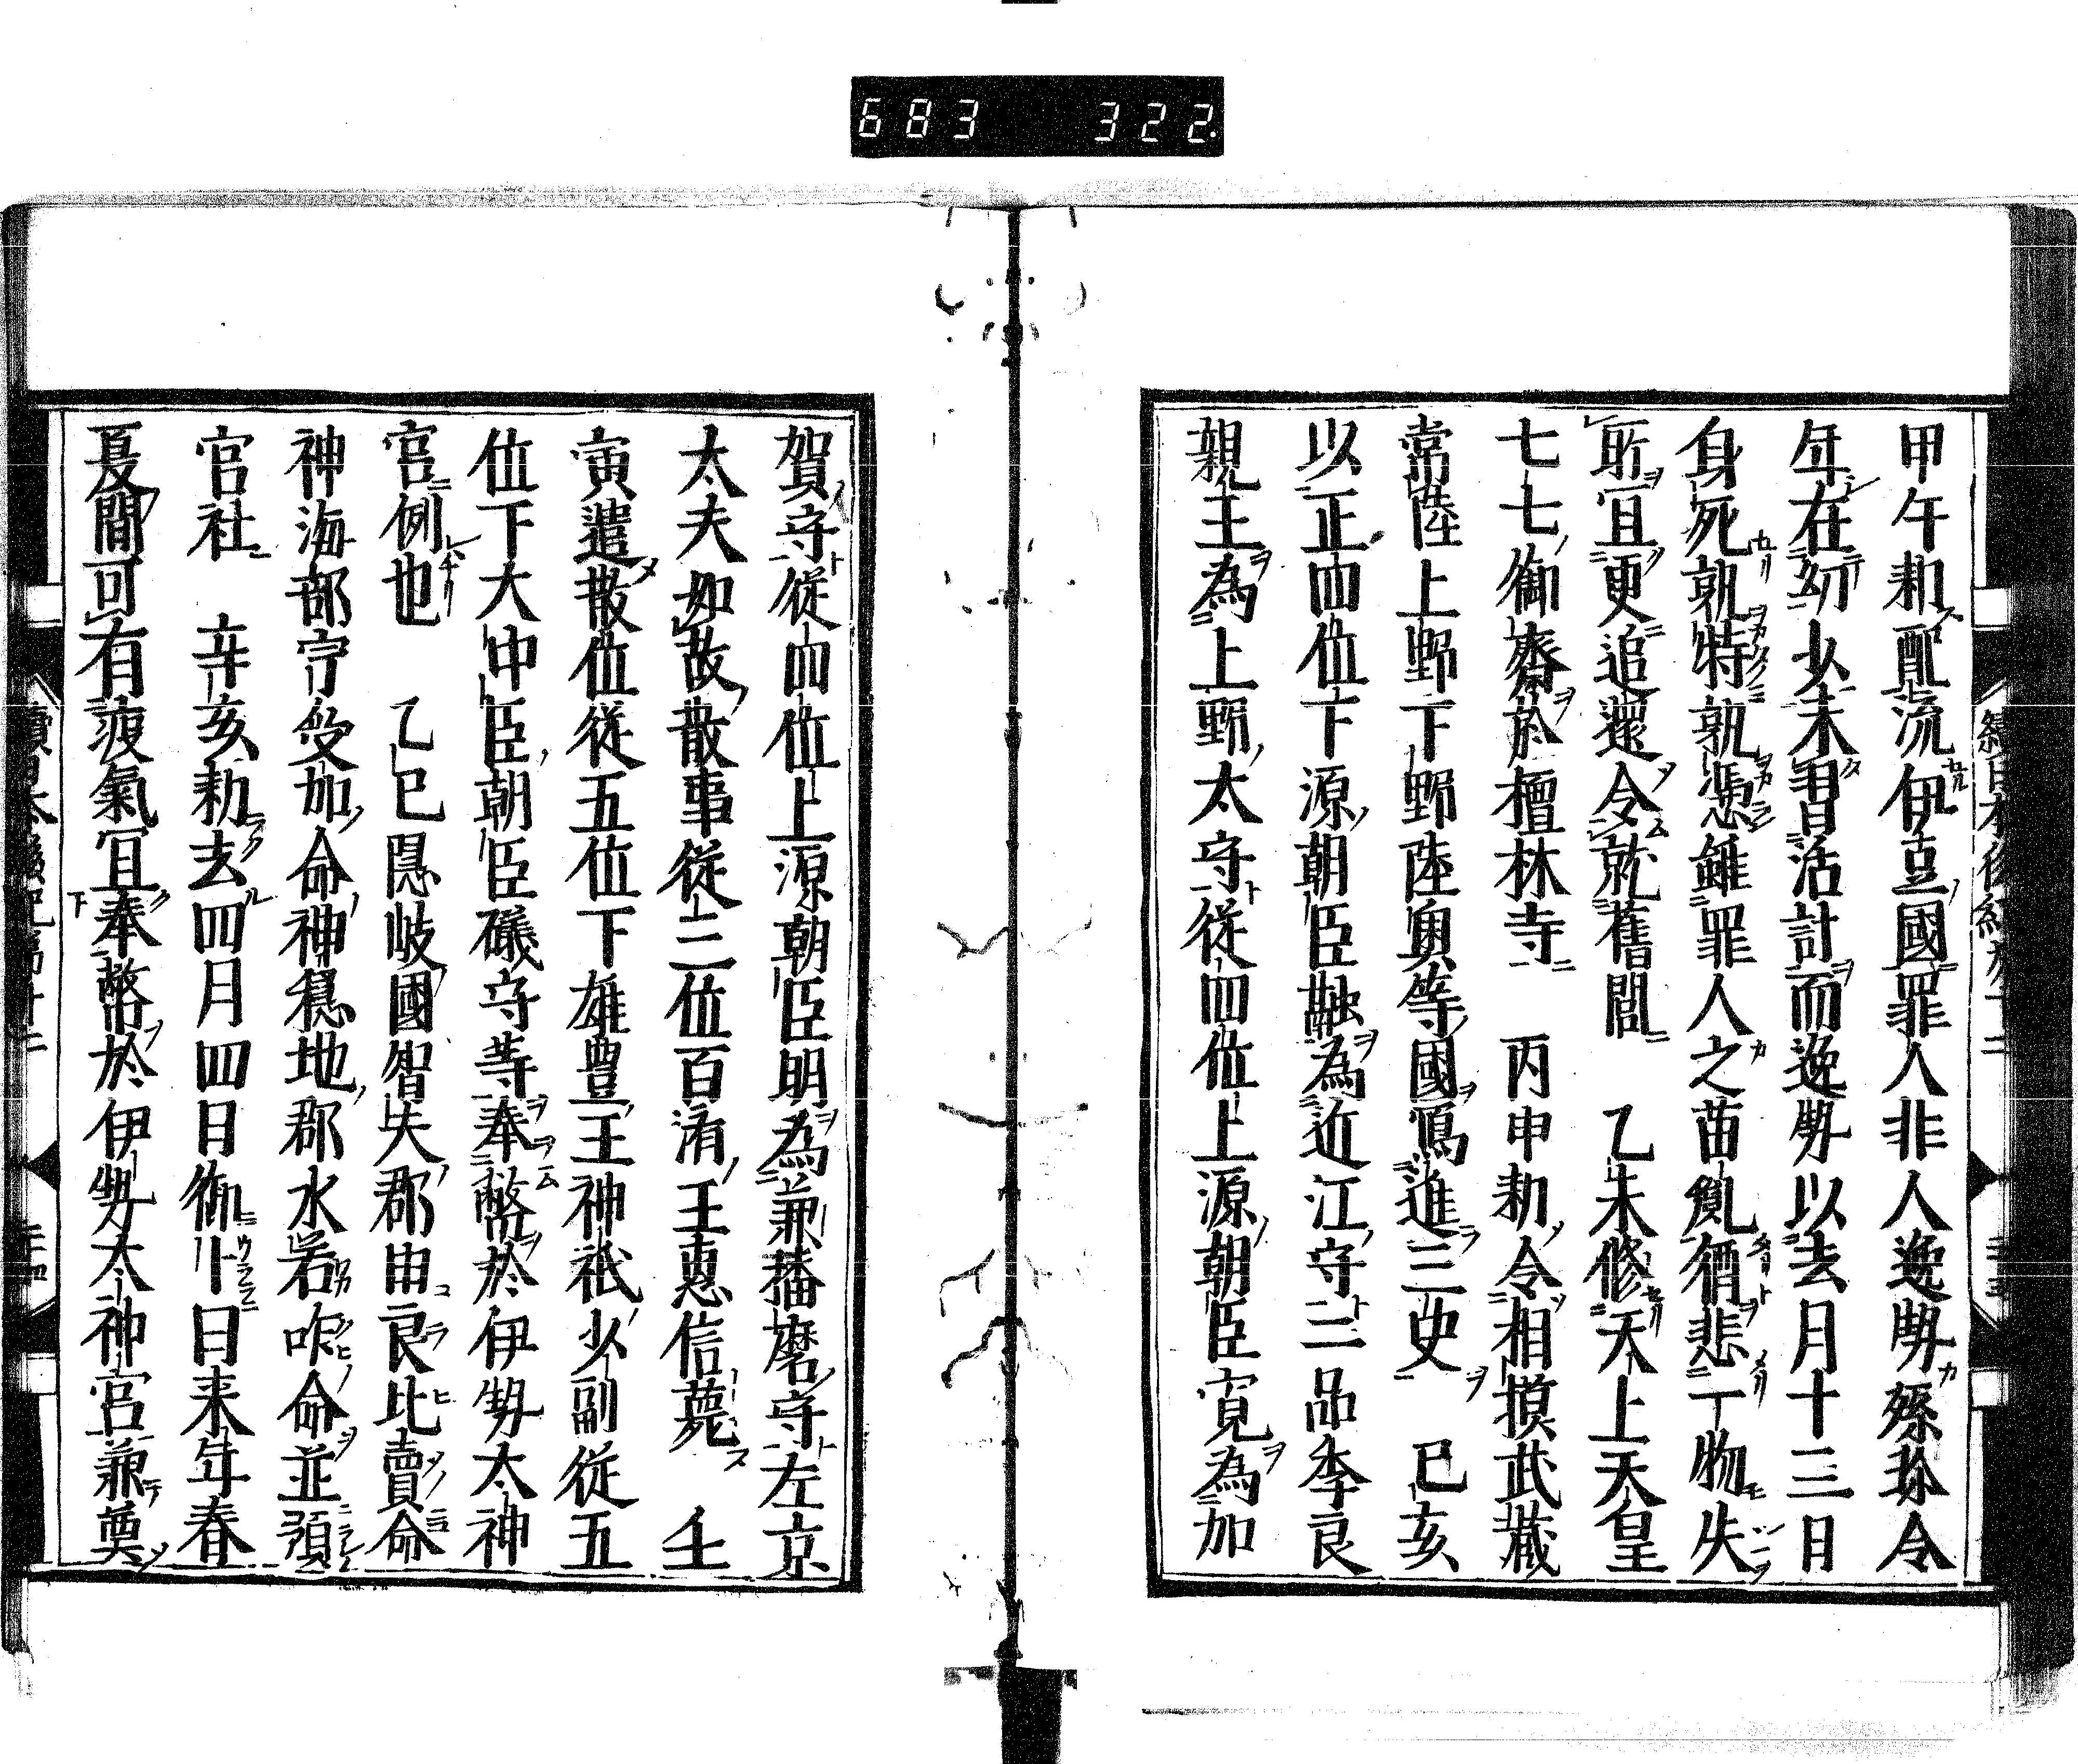 683 322
甲午勑配流伊豆國罪人非人逸勢孫珍令
年在幼少未習活計而逸勢以去月十三日
身死孰特孰憑雖罪人之苗胤猶悲一物失
所宜更追還令就舊閭 乙未修太上天皇
七七御齋於檀林寺 丙申勑令相摸武藏
常陸上野下野陸奧等國寫進三史 己亥
以正四位下源朝臣融為近江守二品秀良
親王為上野太守從四位上源朝臣寬為加
賀守從四位上源朝臣明為兼播磨守左京
太夫如故散事從三位百濟王惠信薨 壬
寅遣散位從五位下雄豊王神祇少副從五
位下大中臣朝臣礒守等奉幣於伊勢太神
宮例也 乙巳隱岐國智夫郡由良比賣命
神海部郡宇受加命神穩地郡水若吹命並預
官社 辛亥勑去四月四日御卜曰来年春
夏間可有疫氣宜奉幣於伊勢太神宮兼奠